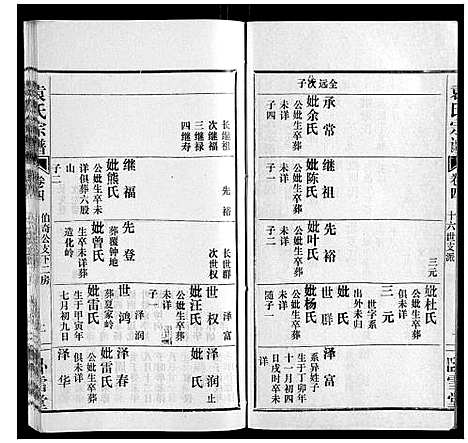 袁氏宗谱
卷四
十六世支派
卧雪堂
全远次子
承常
妣余氏
公妣生卒葬
未详
子四
继祖
妣陈氏
公妣生卒葬
未详
先裕
妣叶氏
公妣生卒葬
未详
三元
妣杜氏
公妣生卒葬
俱未详
世字系
出外未归
妣 氏
世群
妣杨氏
公妣生卒葬
随子
泽富
系异姓子
生于丁卯年
十一月初四
日戌时卒未
详
长继祖
次继福
三继禄
四继寿
先裕
继福
妣熊氏
公妣生卒未
详俱葬六股
山
子二
长世群
次世权
先登
妣曾氏
葬覆钟地
生卒未详葬
造化岭
泽富
世权
妣汪氏
公妣生卒葬
未详
泽润
世鸿
葬夏家岭
妣雷氏
生于甲寅年
七月初九日
泽润 止
妣 氏
泽春
妣雷氏
公妣生卒葬
俱未详
泽华
袁氏宗谱
卷四
伯奇公支下二房
一
卧雪堂